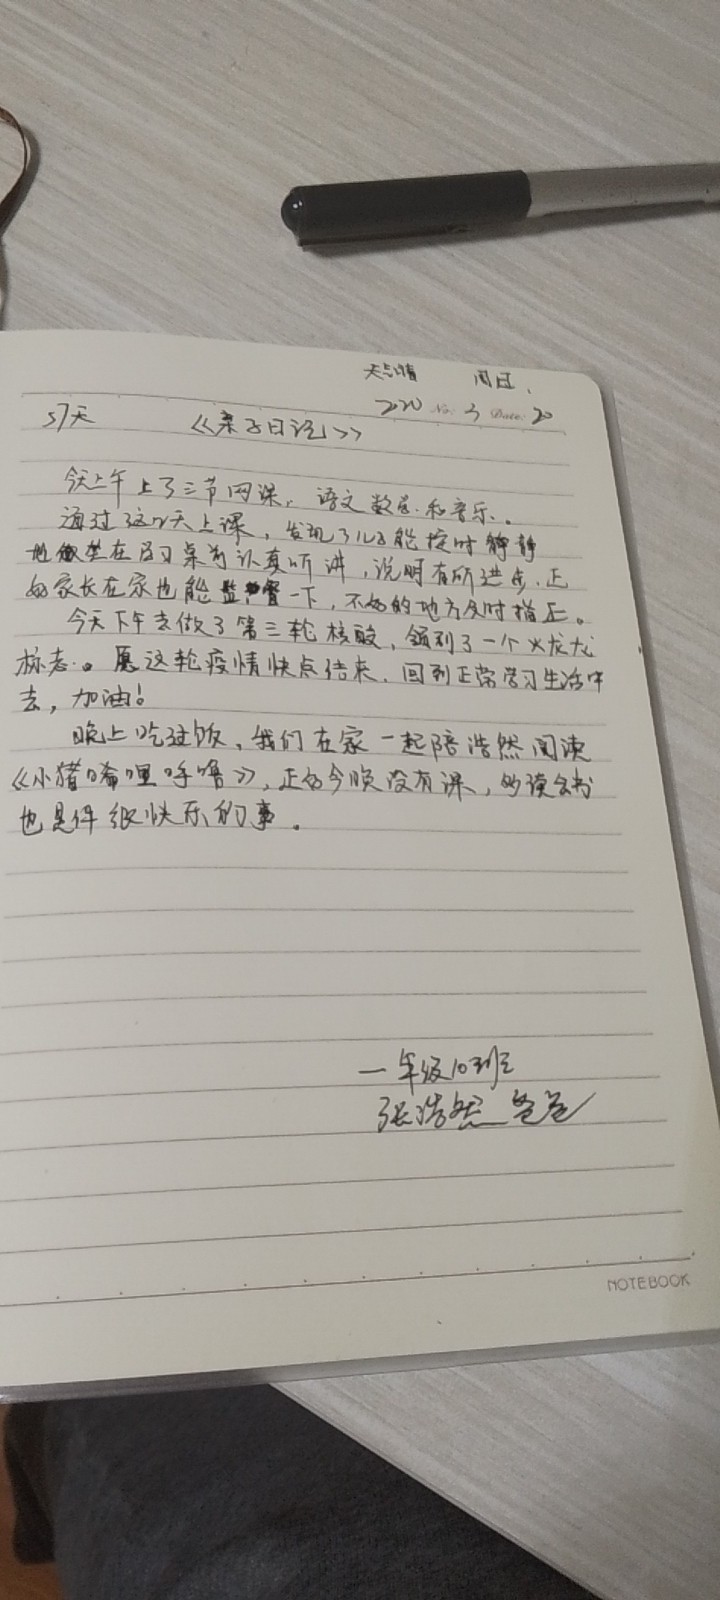 天气晴 周日.
57天 《亲子日记》 2220 No: 3 Date: 20
今天上午上了三节网课, 语文数学和音乐.。
通过这几天上课, 发现了儿子能按时静静
地做坐在学习桌前认真听讲, 说明有所进步.正
好家长在家也能监督一下, 不好的地方及时指正。
今天下午去做了第三轮核酸, 领到了一个火龙龙
标志。愿这轮疫情快点结束, 回到正常学习生活中
去, 加油!
晚上吃过饭, 我们在家一起陪浩然阅读
《小猪唏哩呼噜》, 正好今晚没有课, 读书
也是件很快乐的事。
一年级10班
张浩然 爸爸
NOTEBOOK